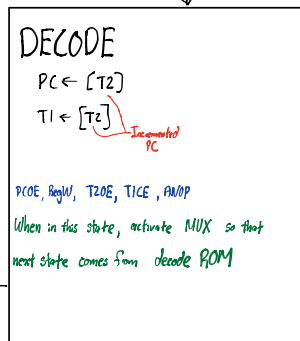 DECODE
PC ← [T2]
T1 ← [T2]
Incremented
PC
PCOE, RegW, T2OE, T1CE, ANOP
When in this state, activate MUX so that
next state comes from decode ROM